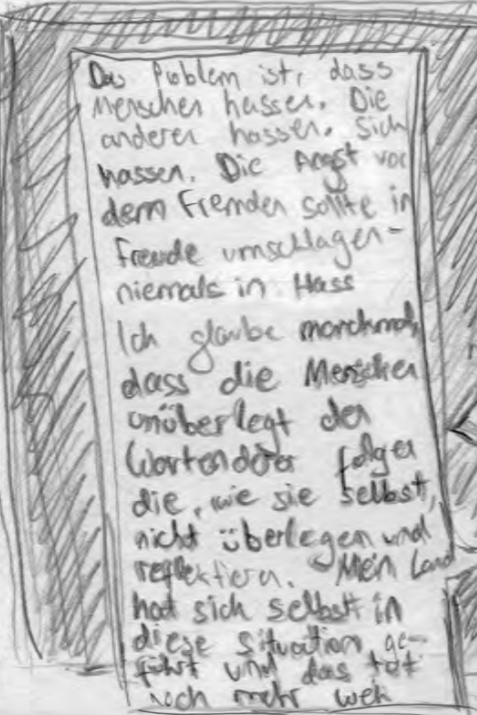 Das Problem ist, dass
Menschen hassen. Die
anderen hassen. Sich
hassen. Die Angst vor
dem Fremden sollte in
Freude umschlagen-
niemals in Hass
Ich glaube manchmal,
dass die Menschen
unüberlegt den
Worten derer folgen
die, wie sie selbst,
nicht überlegen und
reflektieren. Mein Land
hat sich selbst in
diese Situation ge-
führt und das tut
noch mehr weh